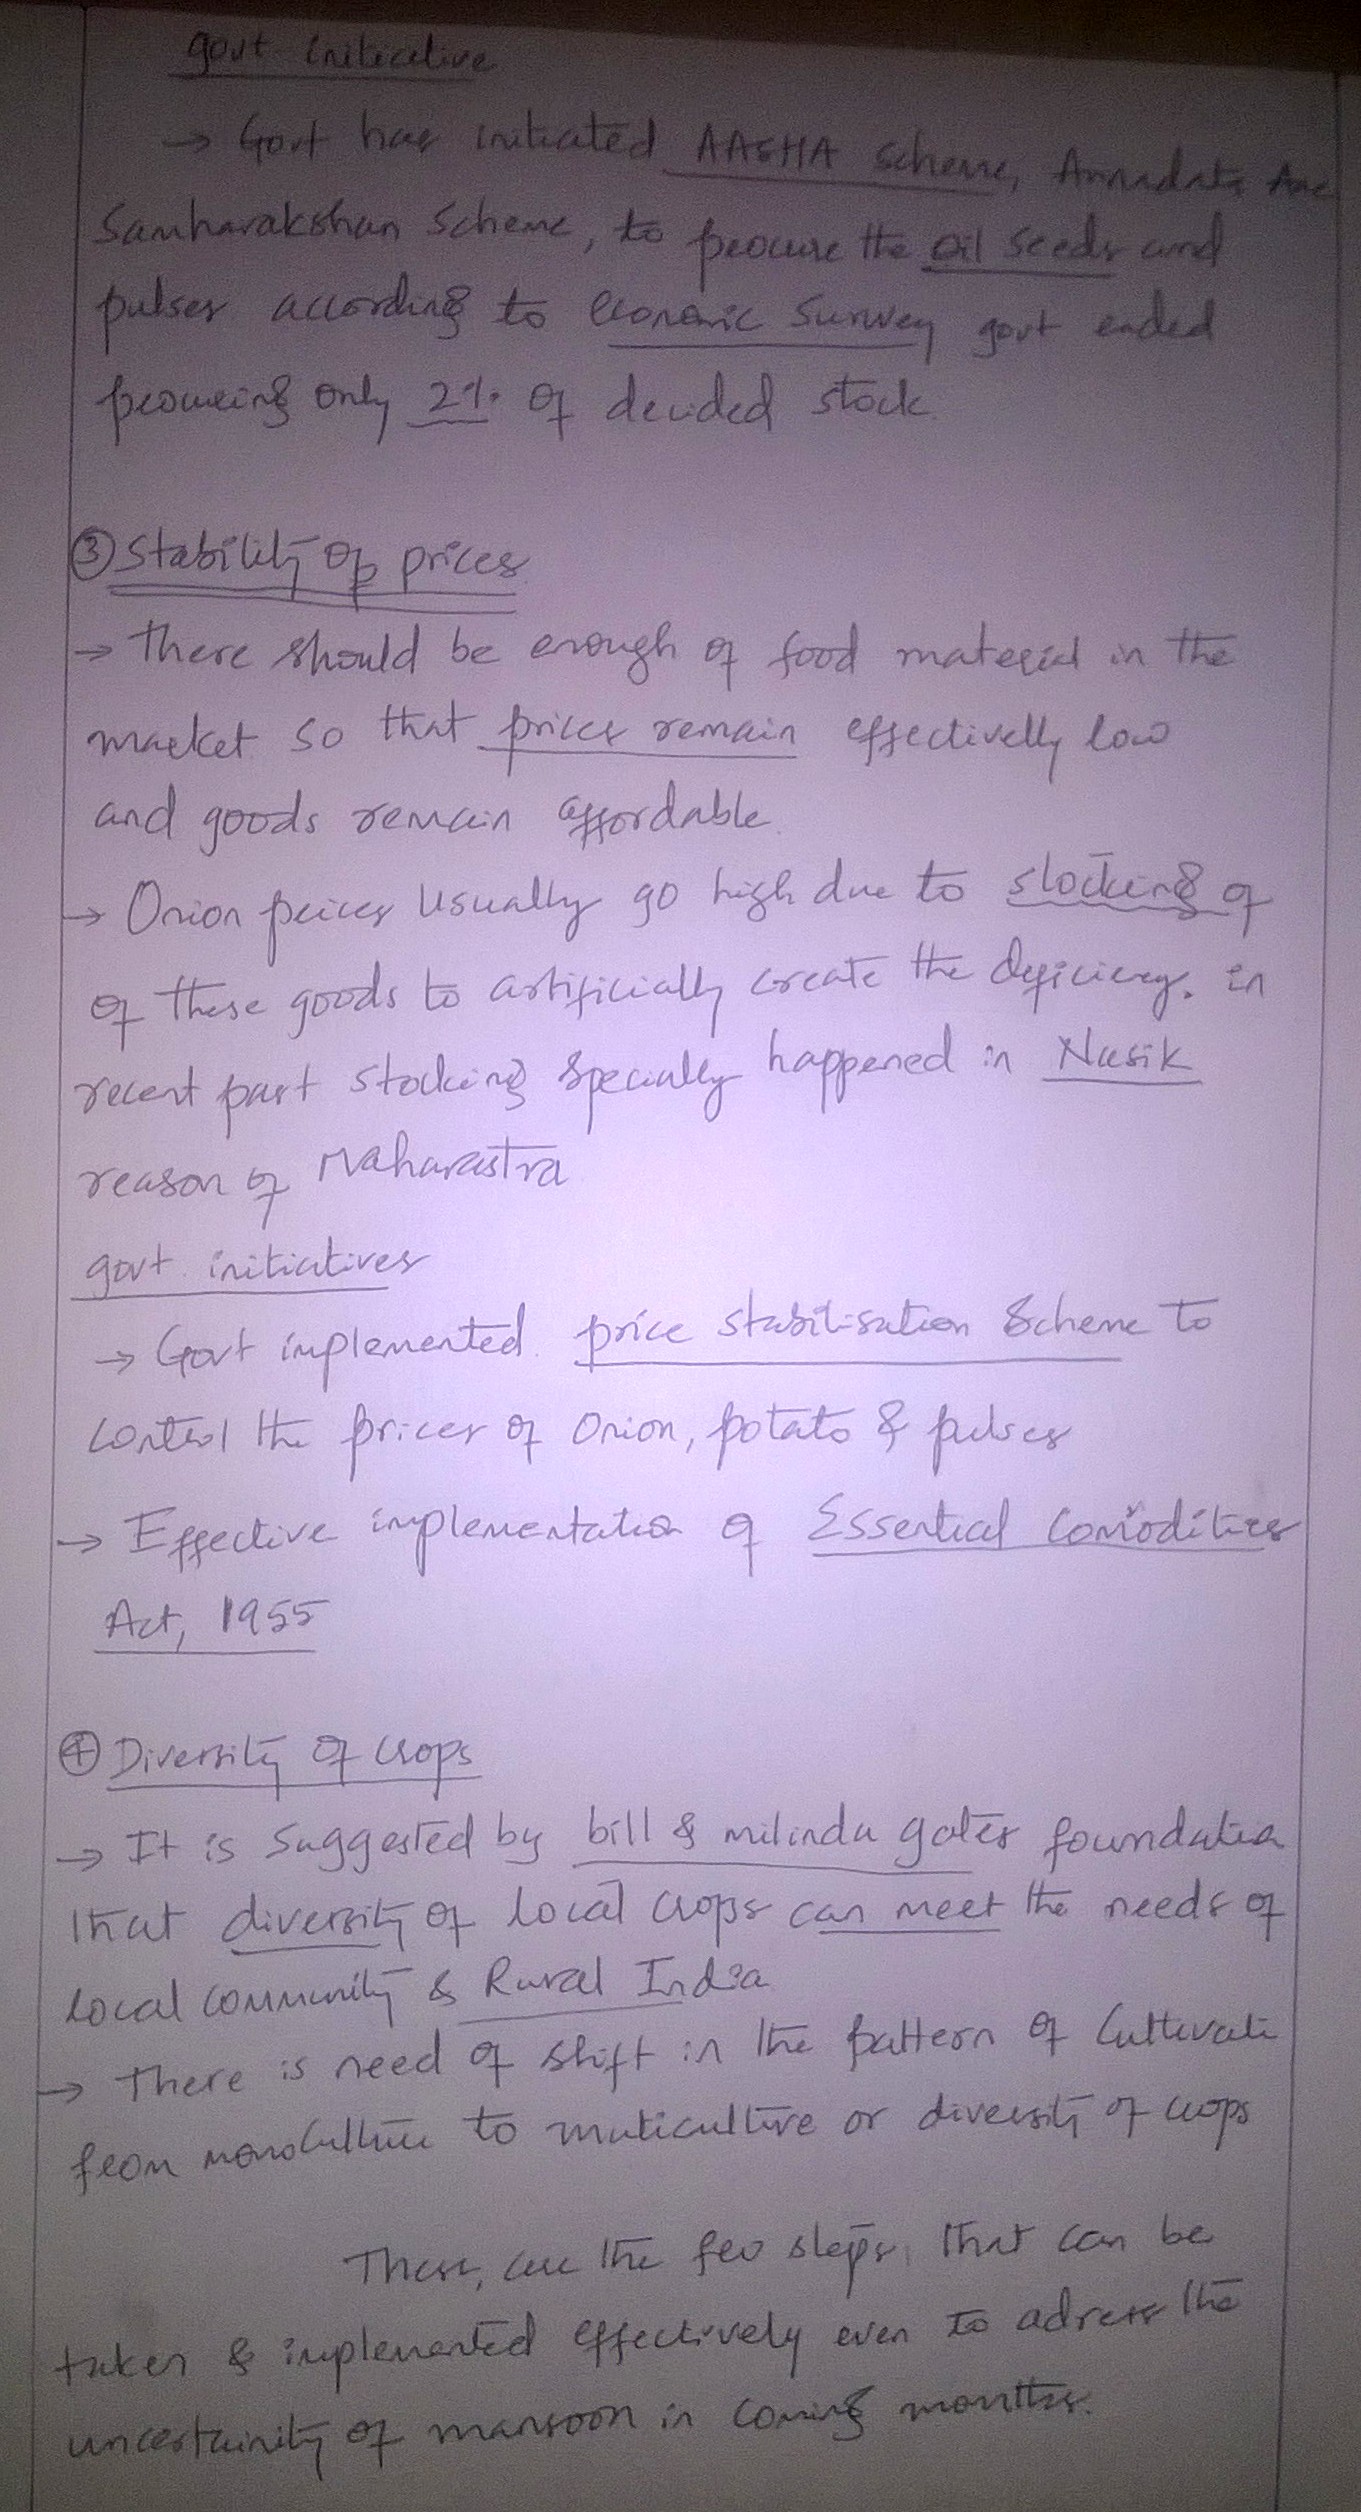 govt initiative
→ Govt has initiated AASHA Scheme, Annadata Aae
Samharakshan Scheme, to procure the oil seeds and
pulses according to economic Survey govt ended
procureing only 2% of decided stock.
③ Stability of prices
→ there should be enough of food material in the
market so that prices remain effectivelly low
and goods remain affordable.
→ Onion prices usually go high due to stocking of
of these goods to artificially create the deficiency. in
recent past stocking specially happened in Nasik
reason of Maharastra
govt. initiatives
→ Govt implemented price stabilisation Scheme to
control the prices of onion, potato & pulses
→ Effective implementation of Essential Comodities
Act, 1955
④ Diversity of crops
→ It is suggested by bill & milinda gates foundation
that diversity of local crops can meet the needs of
local community & Rural India
→ There is need of shift in the pattern of Cultivati
from monoculture to muticulture or diversity of crops
These, are the few steps, that can be
taken & implemented effectively even to adress the
uncertainity of mansoon in coming months.